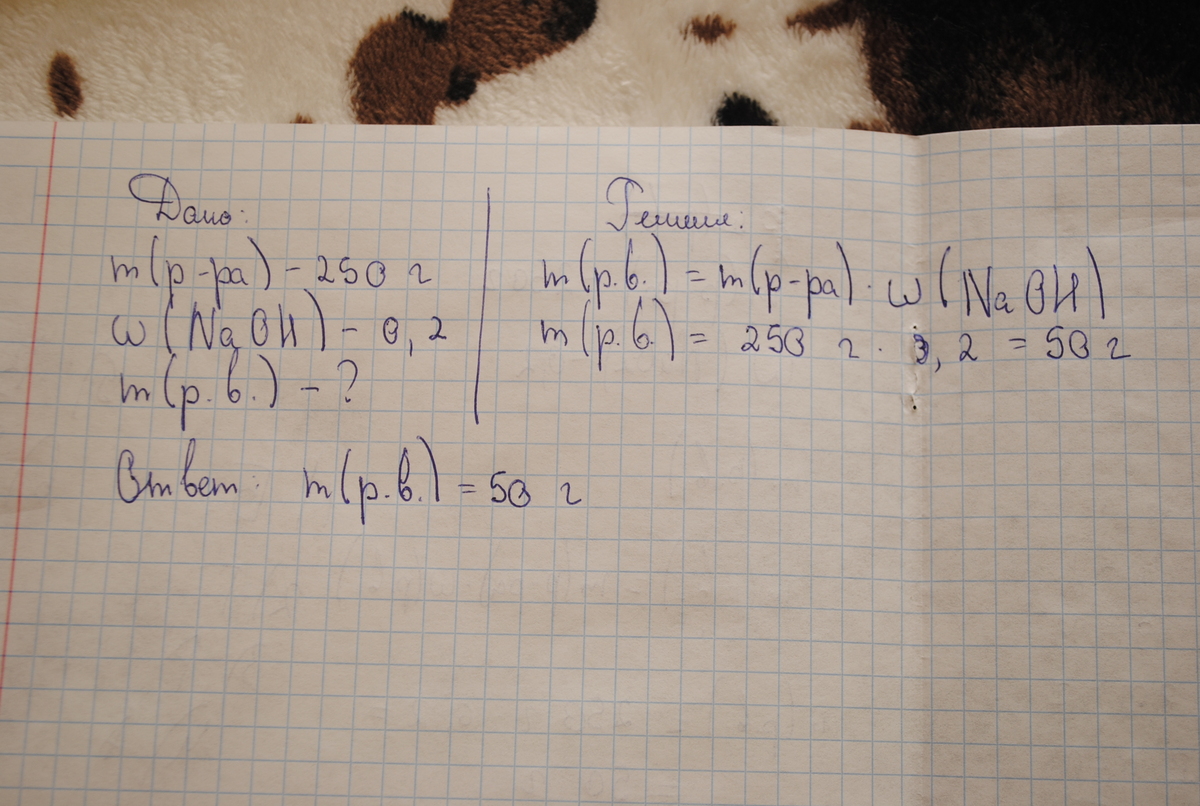 Дано:
m(р-ра) - 250 г
ω(NaOH) - 0,2
m(р.в.) - ?
Решение:
m(р.в.) = m(р-ра) · ω(NaOH)
m(р.в.) = 250 г · 0,2 = 50 г
Ответ: m(р.в.) = 50 г